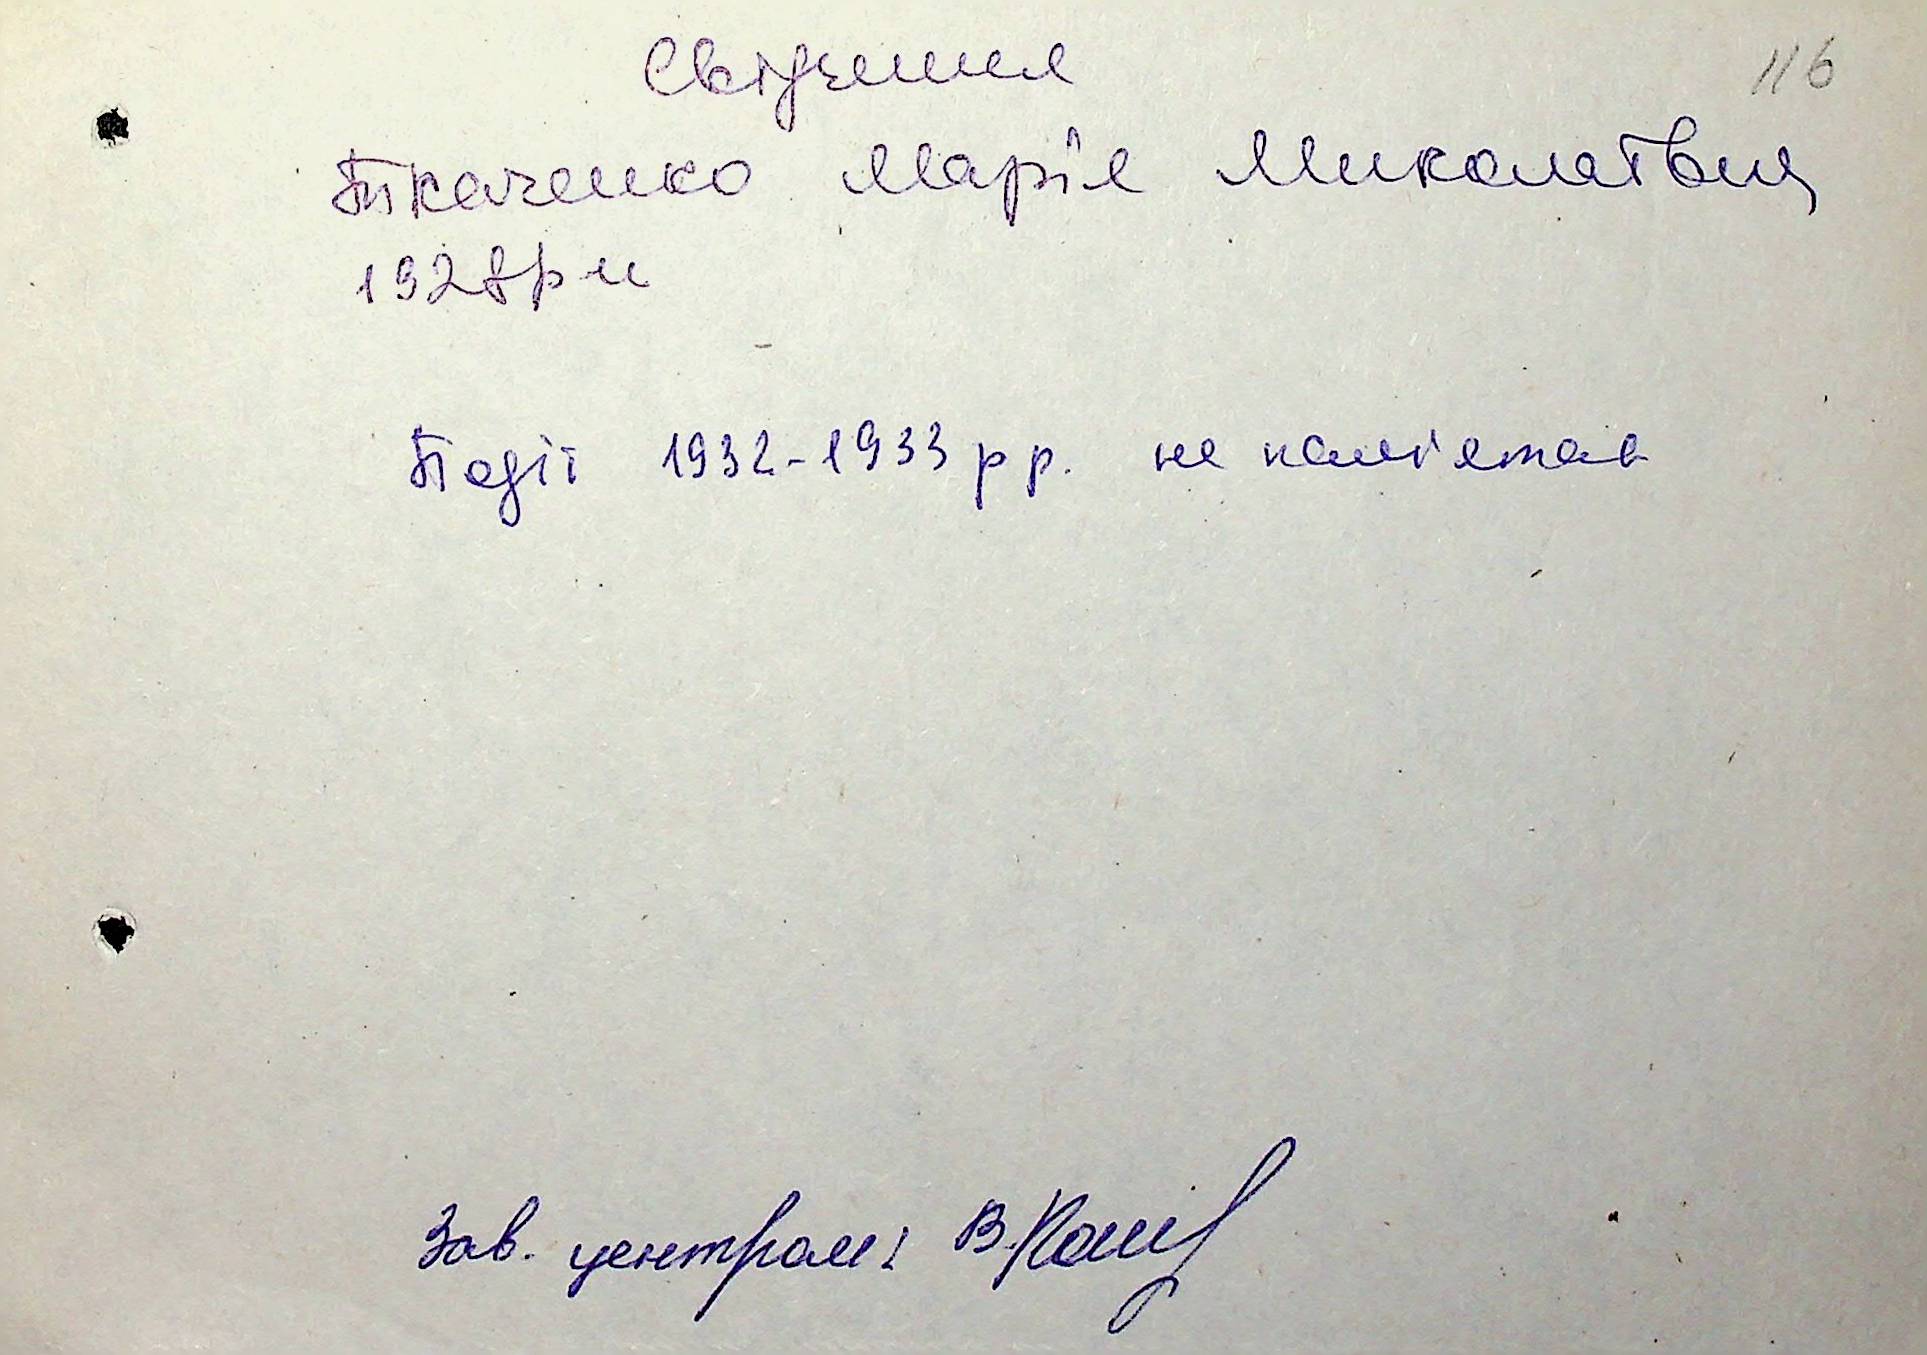 Свідчення
116
Ткаченко Марія Миколаївна
1928 рн
Події 1932-1933 рр. не пам'ятає
Зав. центром: